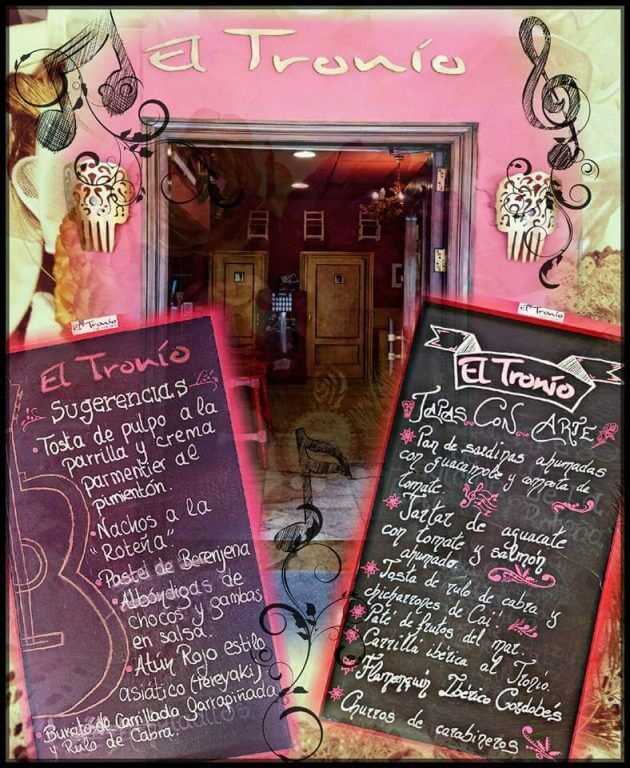 El Tronío
El Tronío
El Tronío
El Tronío
Sugerencias
• Tosta de pulpo a la
parrilla y crema
parmentier al
pimentón.
• Nachos a la
"Roteña".
• Pastel de Berenjena
• Albóndigas de
chocos y gambas
en salsa.
• Atún Rojo estilo
asiático (Tereyaki)
Burrito de Carrillada garrapiñada
y Rulo de Cabra.
El Tronío
Tapas Con Arte
Pan de sardinas ahumadas
con guacamole y compota de
tomate.
Tartar de aguacate
con tomate y salmón
ahumado.
Tosta de rulo de cabra y
chicharrones de Cai!
Paté de frutos del mar.
Carrillá ibérica al Tronío.
Flamenquín Ibérico Cordobés
Churros de carabineros